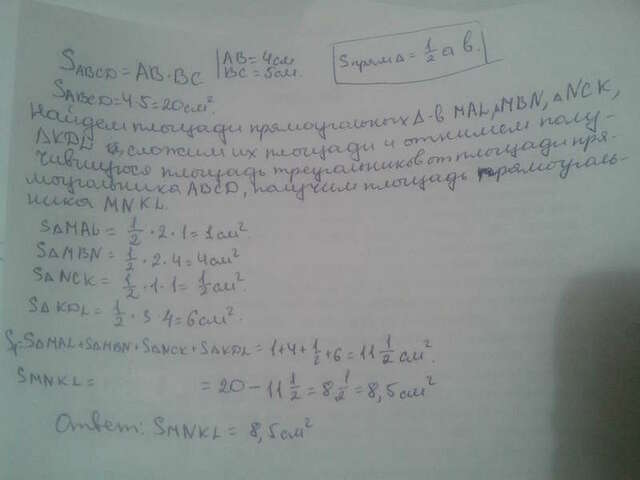 S ABCD = AB · BC | AB = 4см BC = 5см.
S прям Δ = 1/2 a в.
S ABCD = 4·5 = 20см².
Найдем площади прямоугольных Δ-в MAL, ΔMBN, ΔNCK,
ΔKDL и, сложим их площади и отнимем полу-
чившуюся площадь треугольников от площади пря-
моугольника ABCD, получим площадь прямоуголь-
ника MNKL.
SΔMAL = 1/2 · 2 · 1 = 1см².
SΔMBN = 1/2 · 2 · 4 = 4см²
SΔNCK = 1/2 · 1 · 1 = 1/2см².
SΔKDL = 1/2 · 3 · 4 = 6см².
SΔMAL + SΔMBN + SΔNCK + SΔKDL = 1+4+1/2+6 = 11 1/2 см².
S MNKL = = 20 − 11 1/2 = 8 1/2 = 8,5см²
Ответ: S MNKL = 8,5см²